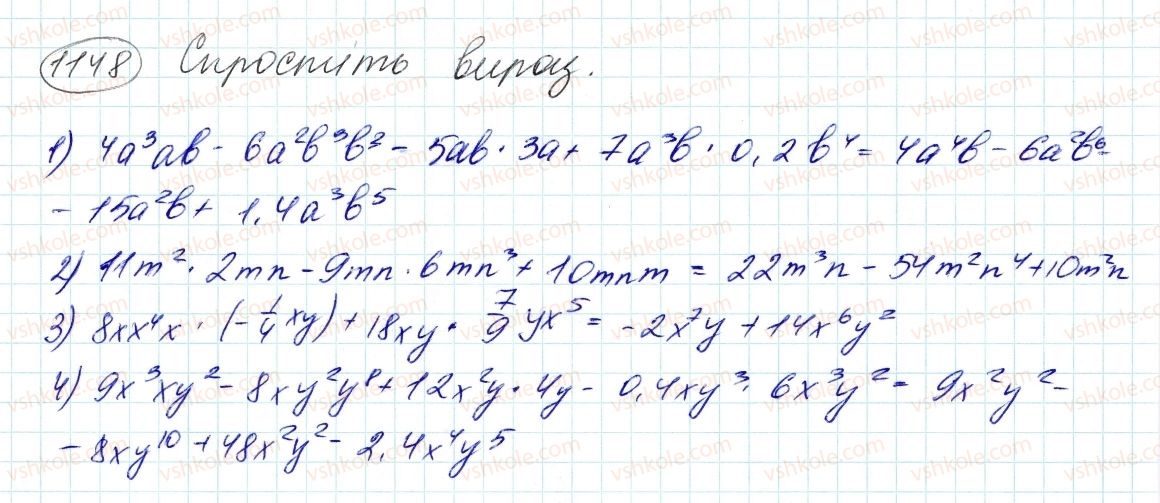 1148 Спростіть вираз.
1) 4a³ab - 6a²b³b³ - 5ab · 3a + 7a³b · 0,2b⁴ = 4a⁴b - 6a²b⁶ -
- 15a²b + 1,4a³b⁵
2) 11m² · 2mn - 9mn · 6mn³ + 10mnm = 22m³n - 54m²n⁴ + 10m²n
3) 8xx⁴x · (-1/4 xy) + 18xy · 7/9 yx⁵ = -2x⁷y + 14x⁶y²
4) 9x³xy² - 8xy²y⁸ + 12x²y · 4y - 0,4xy³ · 6x³y² = 9x²y² -
- 8xy¹⁰ + 48x²y² - 2,4x⁴y⁵